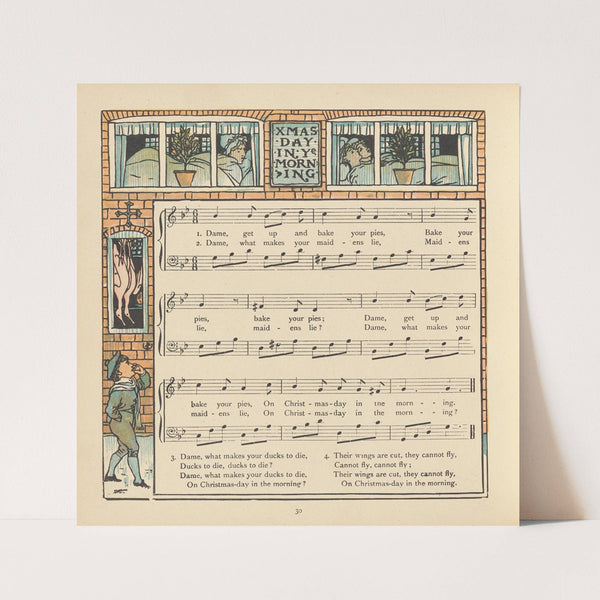 XMAS
DAY
IN·Yᵉ
MORN
ING
1. Dame, get up and bake your pies, Bake your
2. Dame, what makes your maid - ens lie, Maid - ens
pies, bake your pies; Dame, get up and
lie, maid - ens lie? Dame, what makes your
bake your pies, On Christ - mas-day in the morn - - ing.
maid - ens lie, On Christ - mas-day in the morn - - ing?
3. Dame, what makes your ducks to die,
Ducks to die, ducks to die?
Dame, what makes your ducks to die,
On Christmas-day in the morning?
4. Their wings are cut, they cannot fly,
Cannot fly, cannot fly;
Their wings are cut, they cannot fly,
On Christmas-day in the morning.
30